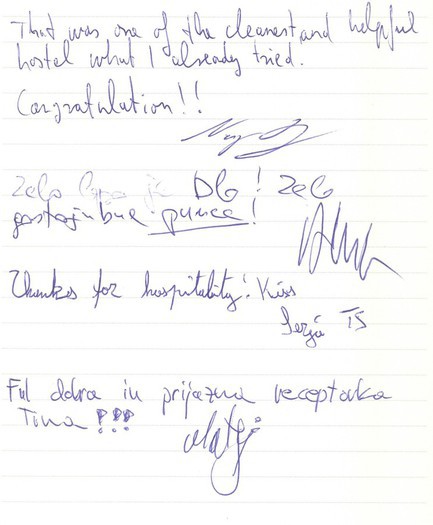 That was one of the cleanest and helpful
hostel what I already tried.
Congratulation!!
Zelo lepo je DB! Zelo
gostoljubne punce!
Thankes for hospitality! Kiss
Serja TS
Ful dobra in prijazna receptorka
Tina !!!
Matej